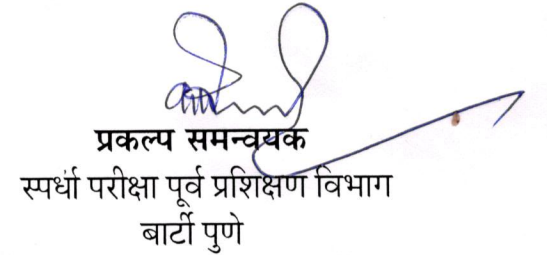 प्रकल्प समन्वयक
स्पर्धा परीक्षा पूर्व प्रशिक्षण विभाग
बार्टी पुणे